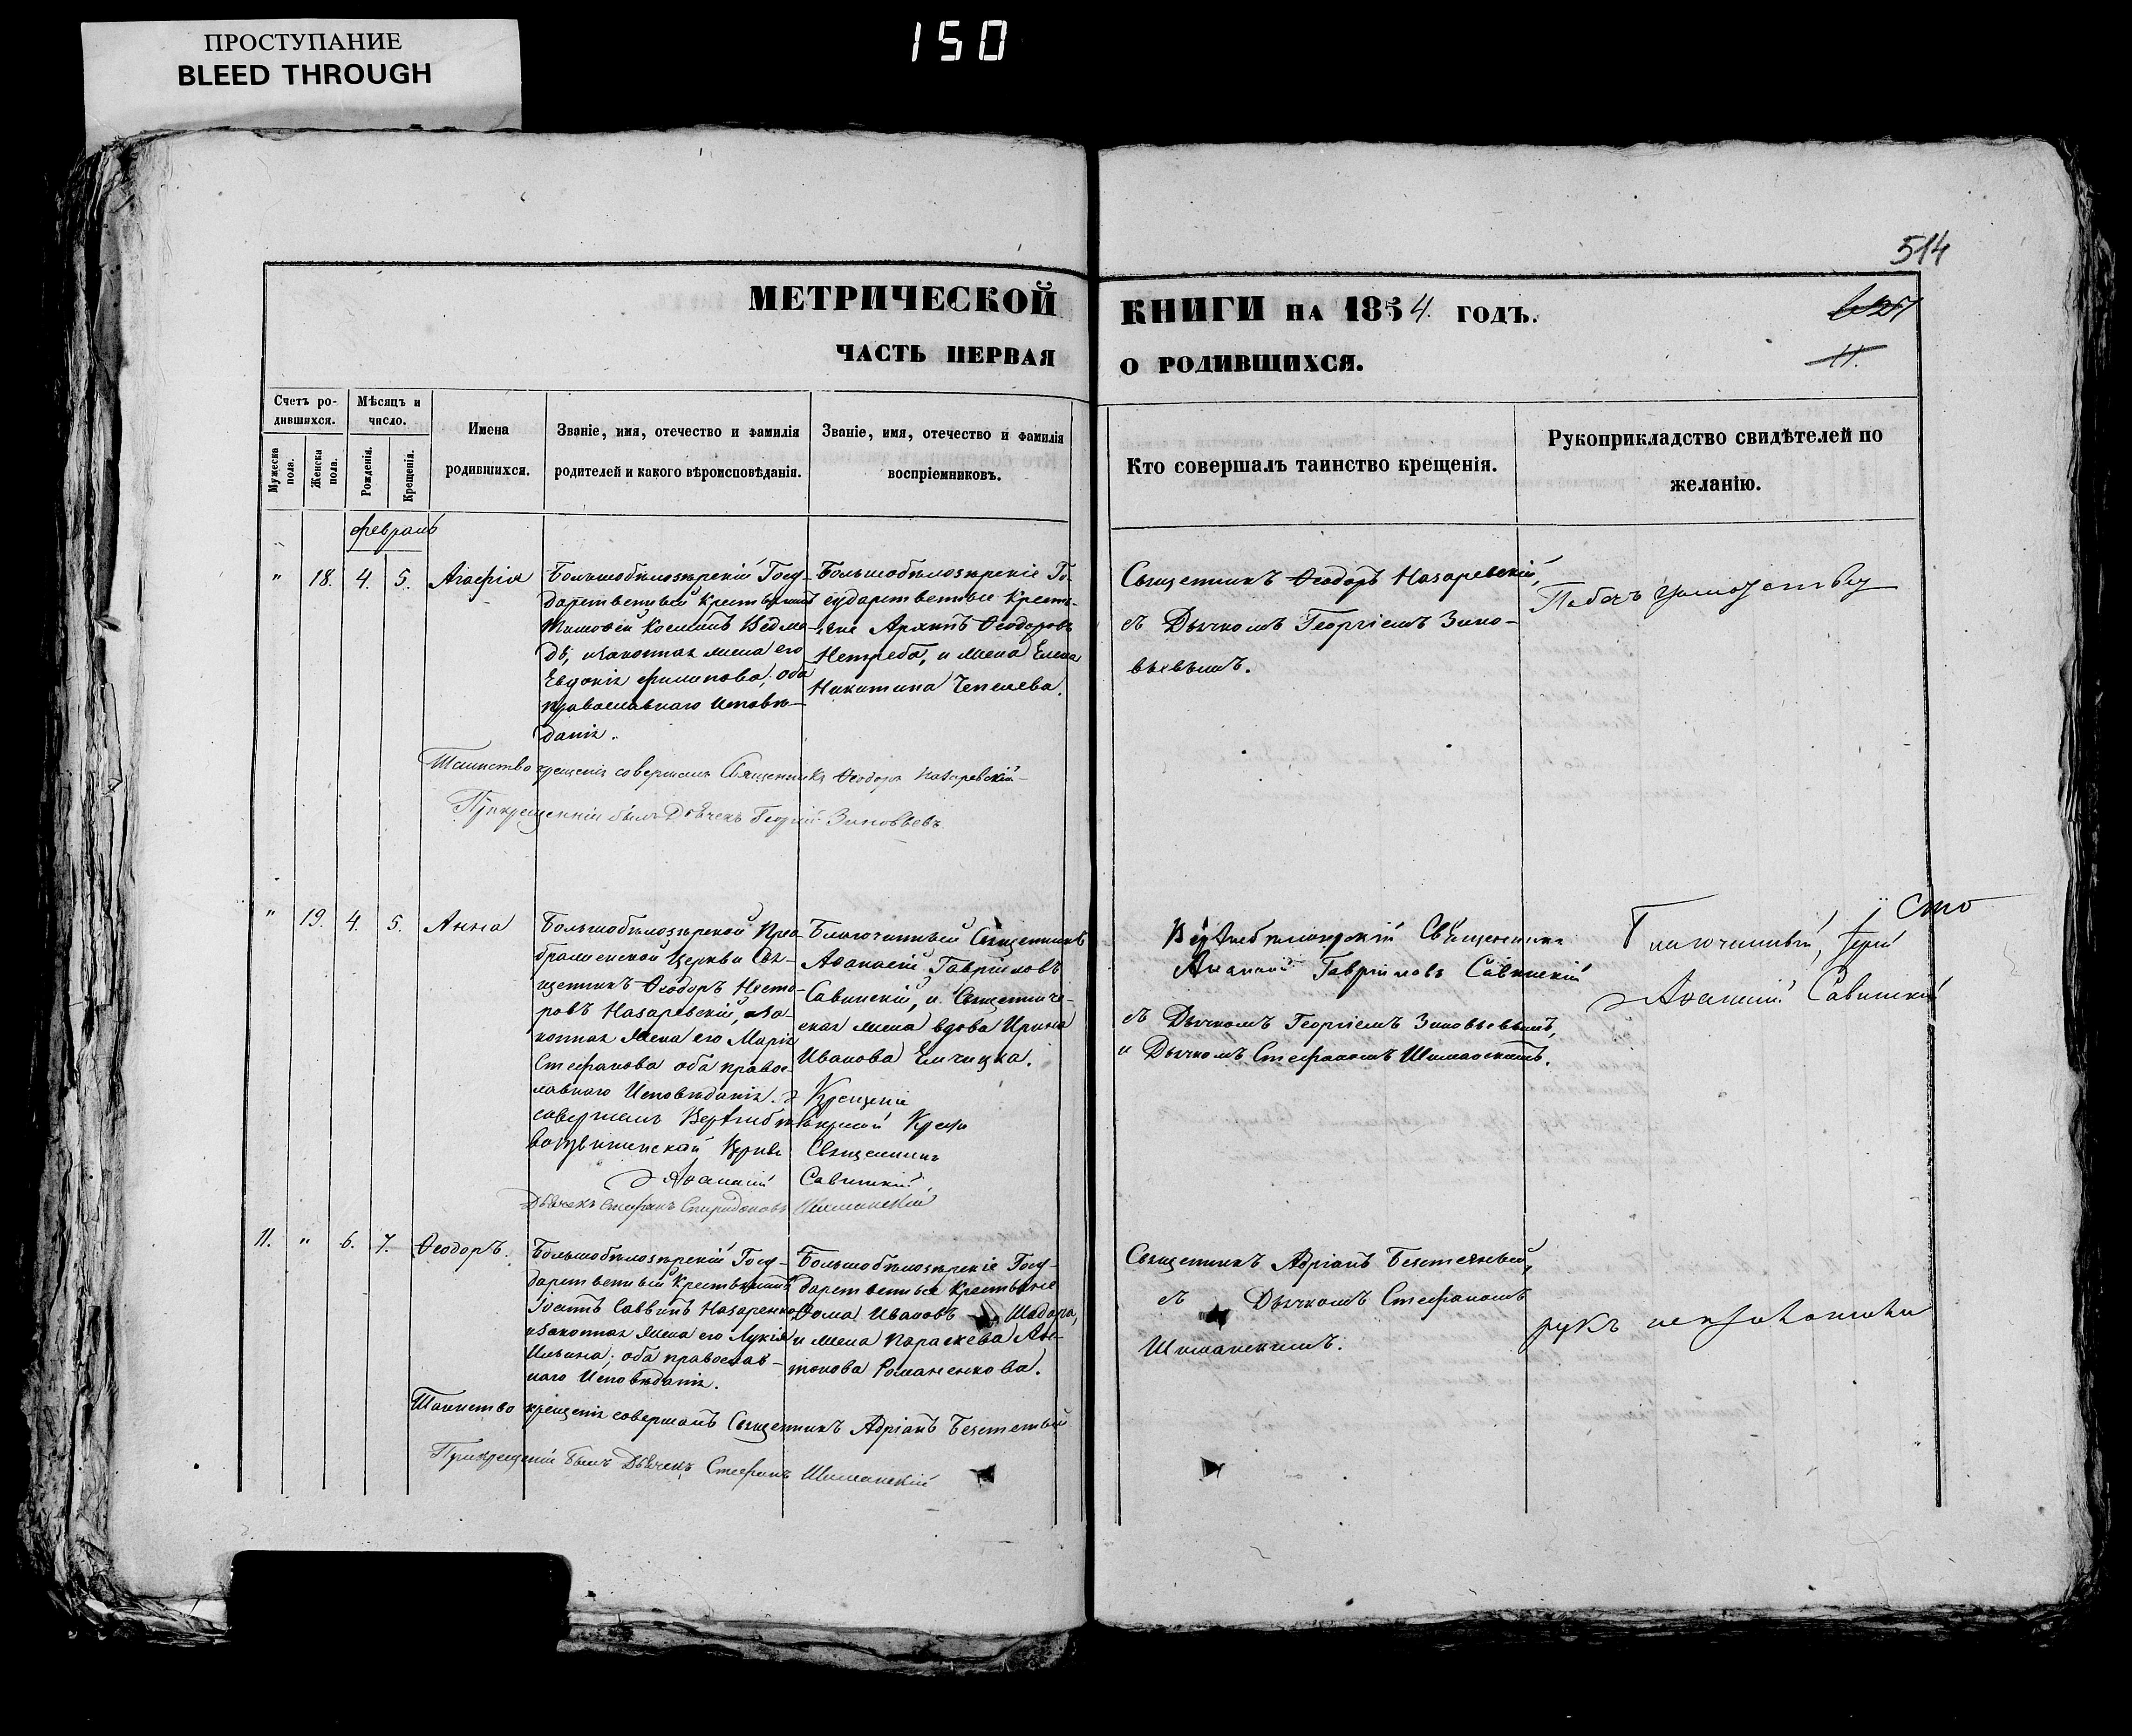 ПРОСТУПАНИЕ
BLEED THROUGH
150
514
МЕТРИЧЕСКОЙ КНИГИ НА 1854. ГОДЪ.
11.
ЧАСТЬ ПЕРВАЯ О РОДИВШИХСЯ.
Счетъ ро-
дившихся.
Мужеска пола.
Женска пола.
Мѣсяцъ и
число.
Рожденія.
Крещенія.
Имена
родившихся.
Званіе, имя, отечество и фамилія
родителей и какого вѣроисповѣданія.
Званіе, имя, отечество и фамилія
воспріемниковъ.
Кто совершалъ таинство крещенія.
Рукоприкладство свидѣтелей по
желанію.
февраль
" 18. 4. 5. Агафія
Большобѣлозѣрскій Госу-
дарственный Крестьянинъ
Тимовей Косминъ Ведме-
дь, изаконная жена его
Евдокія Филипова; оба
православнаго Исповѣ-
данія.
Большобѣлозѣрскіе Го-
сударственные Кресть-
яне Архипъ Ѳеодоровъ
Нетреба, и жена Елена
Никитина Чепелева.
Священникъ Ѳеодоръ Назаревскій,
съ Дьячкомъ Георгіемъ Зино-
вьевымъ.
Таинство крещенія совершалъ Священникъ Ѳеодоръ Назаревскій
Прикрещеніи былъ Дьячекъ Георгій Зиновьевъ
" 19. 4. 5. Анна
Большобѣлозѣрской Прео-
браженской Церкви Свя-
щенникъ Ѳеодоръ Несто-
ровъ Назаревскій, иза-
конная жена его Марія
Стефанова оба правос-
лавнаго Исповѣданія.
Благочинный Священникъ
Аѳанасій Гавріиловъ
Савинскій, и Священниче-
ская жена вдова Ирина
Иванова Ельчицка.
Крещеніе
совершалъ
Священникъ
Савинскій
Дьячекъ Стефанъ Спиридоновъ Шиманскій
Священникъ
Гавріиловъ Савинскій
съ Дьячкомъ Георгіемъ Зиновьевымъ,
и Дьячкомъ Стефаномъ Шиманскимъ.
Благочинный, Іерей
Аѳанасій Савинскій
11. " 6. 7. Ѳеодоръ.
Большобѣлозѣрскій Госу-
дарственный Крестьянинъ
Іосифъ Саввинъ Назаренко
изаконная жена его Лукія
Ильина; оба православ-
наго Исповѣданія.
Большобѣлозѣрскіе Госу-
дарственные Крестьяне
Ѳома Ивановъ Шадара,
и жена Параскева Ан-
тонова Романенкова.
Священникъ Адріанъ Безстежный,
съ Дьячкомъ Стефаномъ
Шиманскимъ.
рукъ
Таинство крещенія совершалъ Священникъ Адріанъ Безстежный
Прикрещеніи былъ Дьячекъ Стефанъ Шиманскій